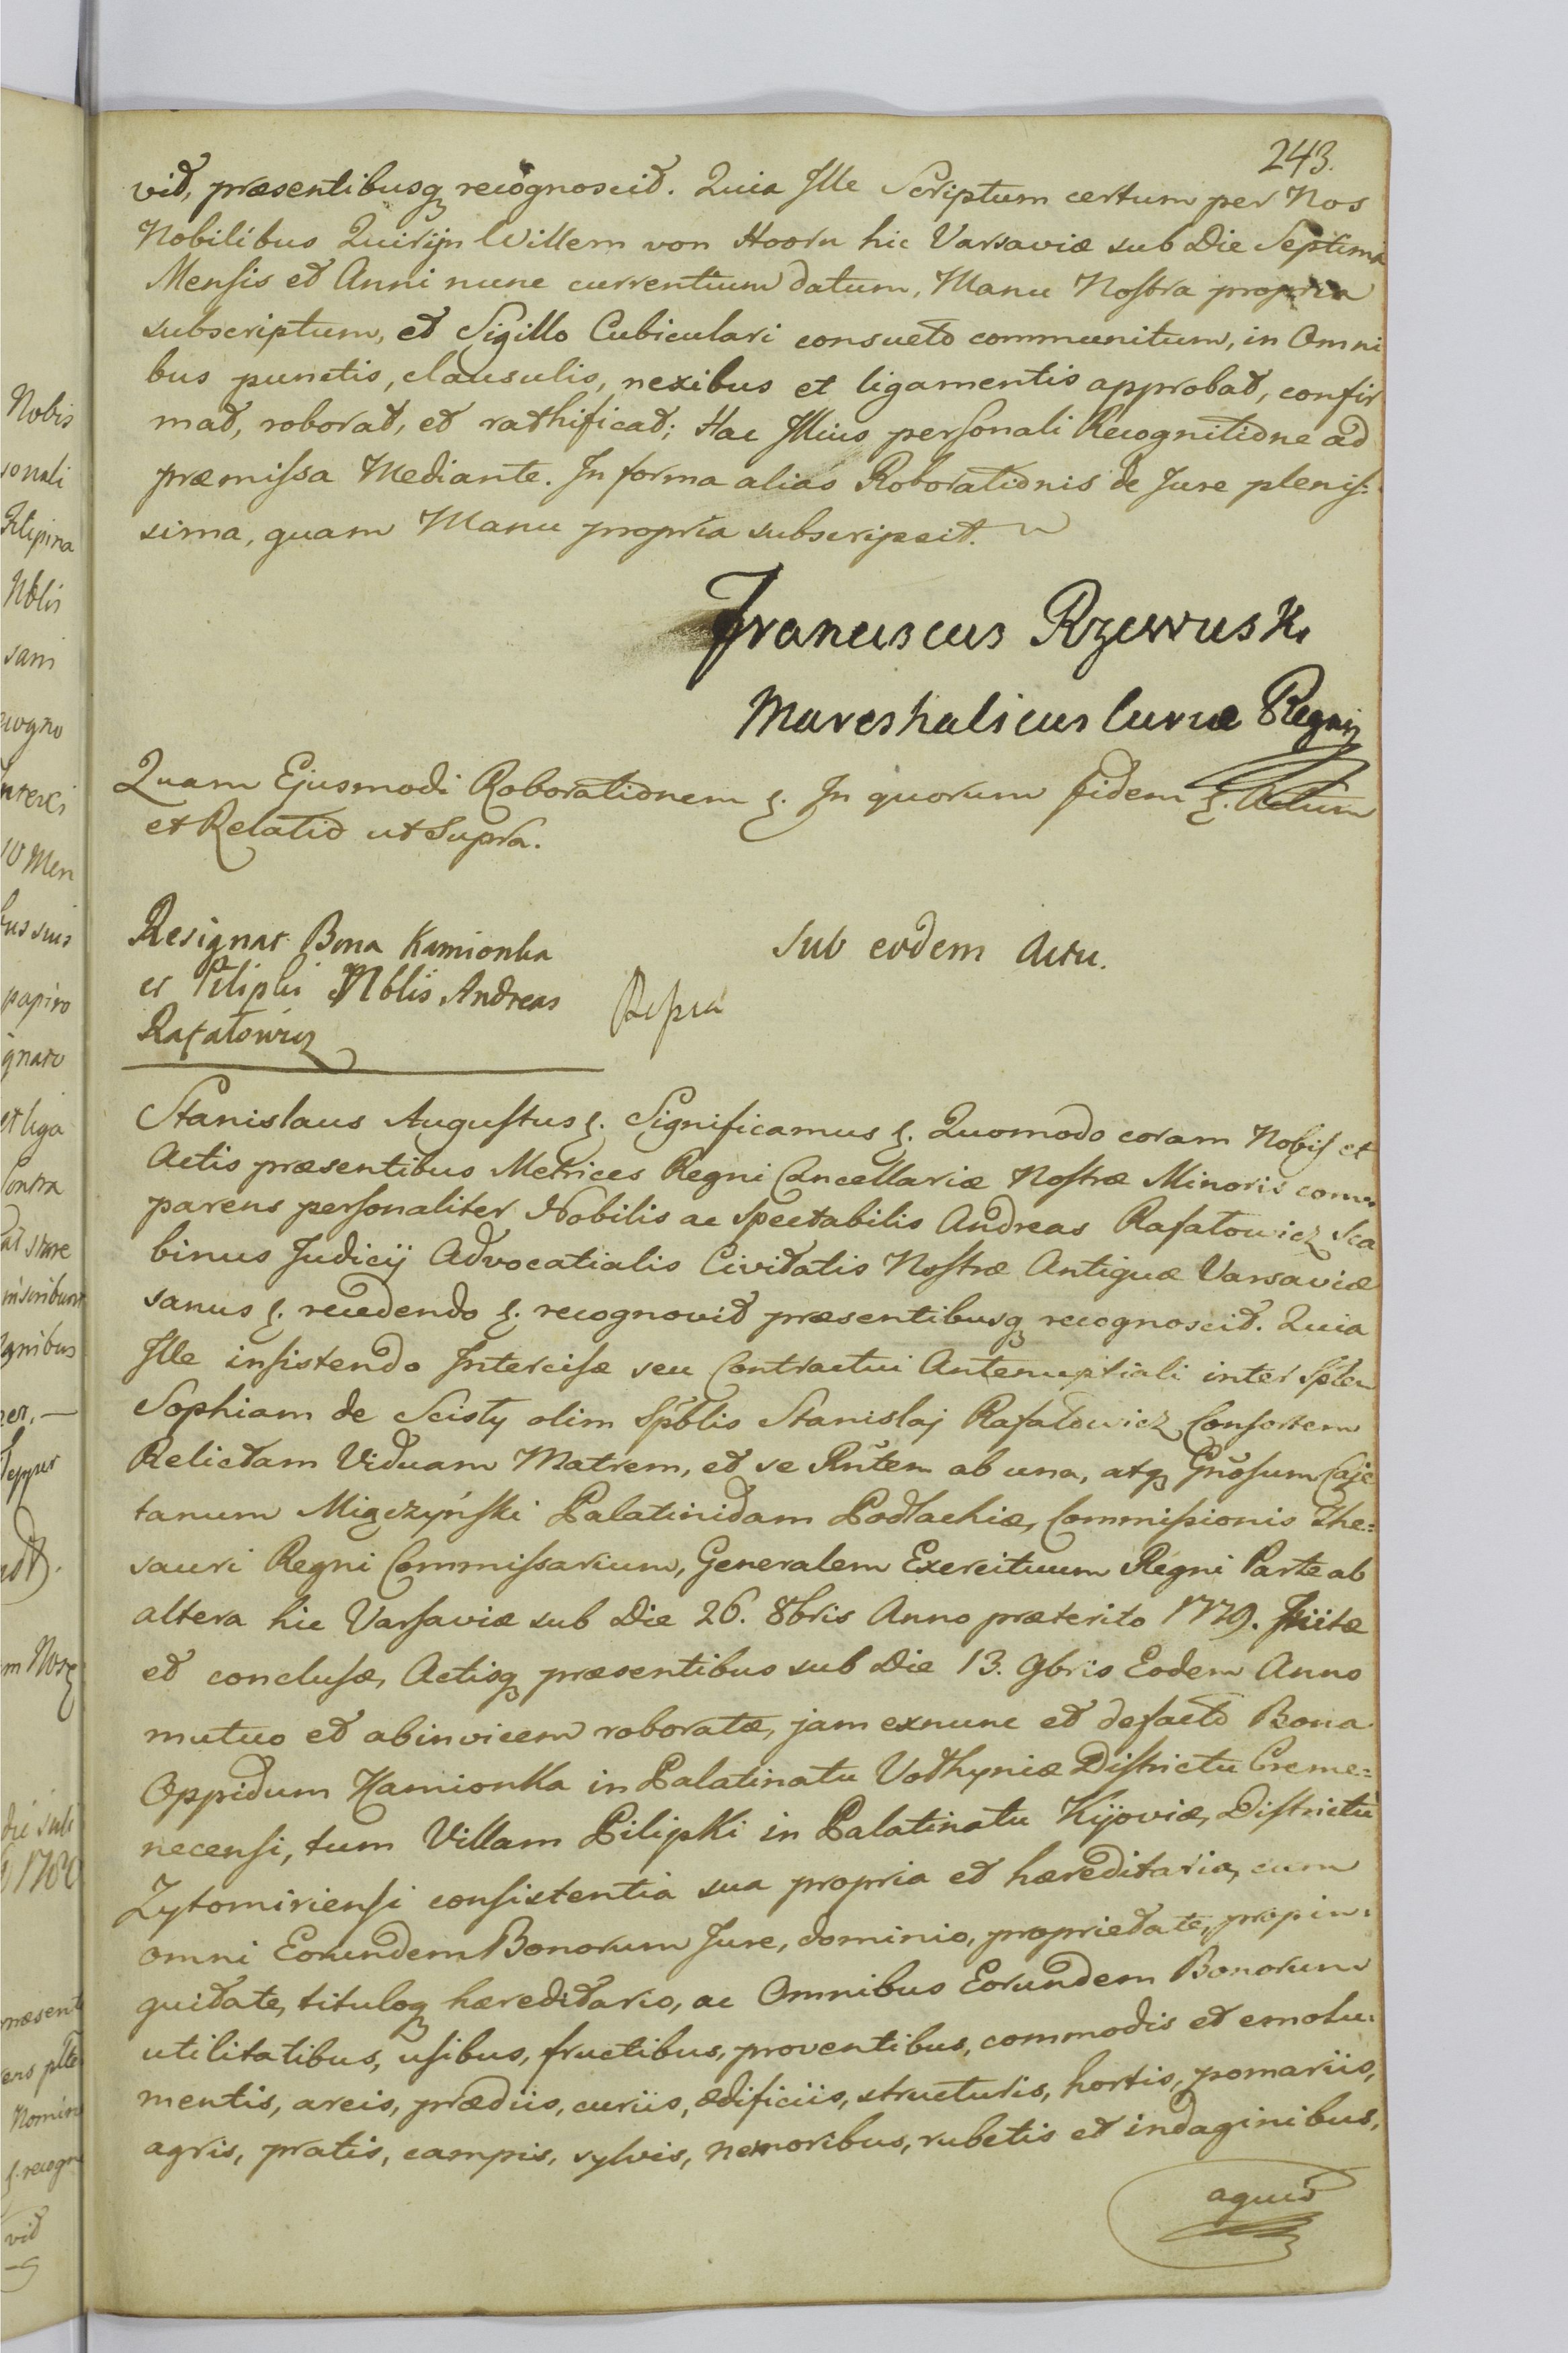 243.
vit, præsentibusq recognoscit. Quia Ille Scriptum certum per Nos
Nobilibus Quirijn Willem von Hoorn hic Varsaviæ sub Die Septima
Mensis et Anni nunc currentium datum, Manu Nostra propria
subscriptum, et Sigillo Cubiculari consueto communitum, in Omni
bus punctis, clausulis, nexibus et ligamentis approbat, confir
mat, roborat, et rathificat; Hac Illius personali Recognitione ad
præmissa Mediante. In forma alias Roborationis de Jure plenis:
sima, quam Manu propria subscripsit.
Franciscus Rzewuski
Mareshalicus Curiæ Regnij
Quam Ejusmodi Roborationem &. In quorum fidem &. Actum
et Relatio ut Supra.
Resignat Bona Kamionka
et Pilipki Nblis Andreas
Rafałowicz
Sub eodem Actu.
Stanislaus Augustus &. Significamus &. Quomodo coram Nobis et
Actis præsentibus Metrices Regni Cancellariæ Nostræ Minoris com
parens personaliter Nobilis ac Spectabilis Andreas Rafałowicz Sca
binus Judicij Advocatialis Civitatis Nostræ Antiquæ Varsaviæ
sanus &. recedendo &. recognovit præsentibusq recognoscit. Quia
Ille insistendo Intercisæ seu Contractui Antenuptiali inter Spblem
Sophiam de Scisty olim Spblis Stanislaj Rafałowicz Consortem
Relictam Viduam Matrem, et se Rntem ab una, atq Gnosum Caje
tanum Miączyński Palatinidam Podlachiæ, Commissionis The=
sauri Regni Commissarium, Generalem Exercituum Regni Parte ab
altera hic Varsaviæ sub Die 26. 8bris Anno præterito 1779. Initæ
et conclusæ, Actisq præsentibus sub Die 13. 9bris Eodem Anno
mutuo et abinvicem roboratæ, jam exnunc et defacto Bona
Oppidum Kamionka in Palatinatu Volhyniæ Districtu Creme=
necensi, tum Villam Pilipki in Palatinatu Kijoviæ, Districtu
Zytomiriensi consistentia sua propria et hæreditaria, cum
omni Eorundem Bonorum Jure, dominio, proprietate, propin:
quitate, tituloq hæreditario, ac Omnibus Eorundem Bonorum
utilitatibus, usibus, fructibus, proventibus, commodis et emolu:
mentis, areis, prædiis, curiis, ædificiis, structuris, hortis, pomariis,
agris, pratis, campis, sylvis, nemoribus, rubetis et indaginibus,
aquis